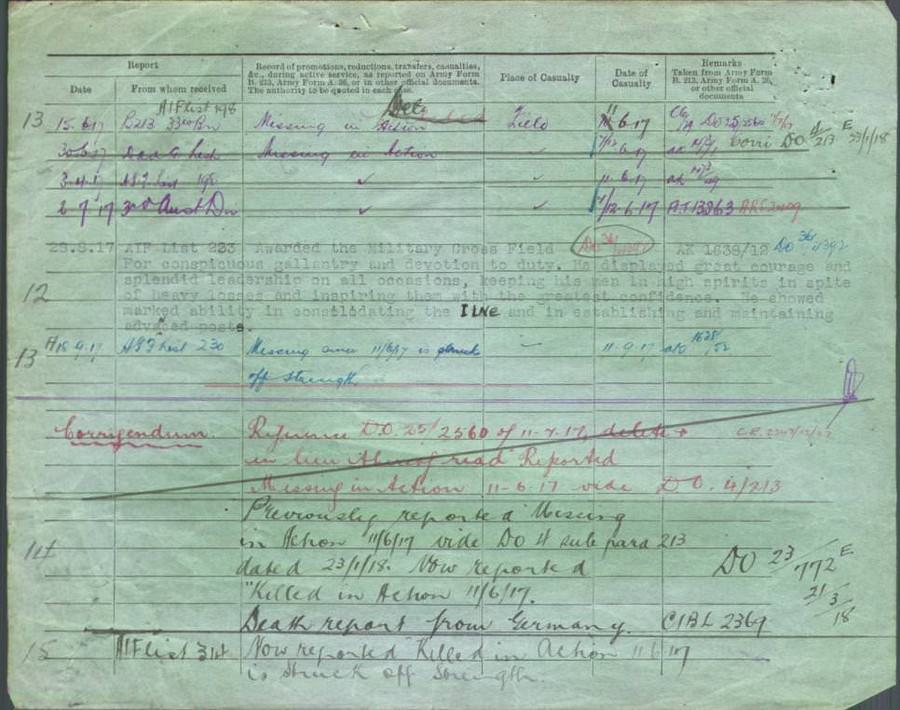 Report
Record of promotions, reductions, transfers, casualties, &c., during active service, as reported on Army Form B. 213, Army Form A. 36, or in other official documents. The authority to be quoted in each case.
Place of Casualty
Date of Casualty
Remarks
Taken from Army Form B. 213, Army Form A. 36, or other official documents
Date
From whom received
AIF list 198
13 15.6.17 B213 33rd Bn Missing in Action Field 6.17
Missing in Action Corri DO 4/213 E 23/1/18
11.6.17
2 7 17 3rd Aust Dn 12.6.17 AJ13963
28.8.17 AIF List 223 Awarded the Military Cross Field AK 1638/12
For conspicuous gallantry and devotion to duty. He displayed great courage and
splendid leadership on all occasions, keeping his men in high spirits in spite
12
of heavy losses and inspiring them with the greatest confidence. He showed
marked ability in consilodating the lINE and in establishing and maintaining
advaced posts.
13 9.17 AIF List 230 Missing since 11/6/17 is struck 11.9.17 AK 1628/52
off strength.
Corrigendum. Reference D.O. 25/2560 of 11-7-17, delete +
in lieu thereof read Reported
Missing in Action 11-6-17 vide D O. 4/213
Previously reported Missing
in Action 11/6/17 vide DO 4 sub para 213
14
dated 23/1/18. Now reported DO 23/772 E
"Killed in Action 11/6/17. 21/3/18
Death report from Germany. CIBL 2369
15 AIF List 314 Now reported Killed in Action 11 6 17
is struck off Strength.